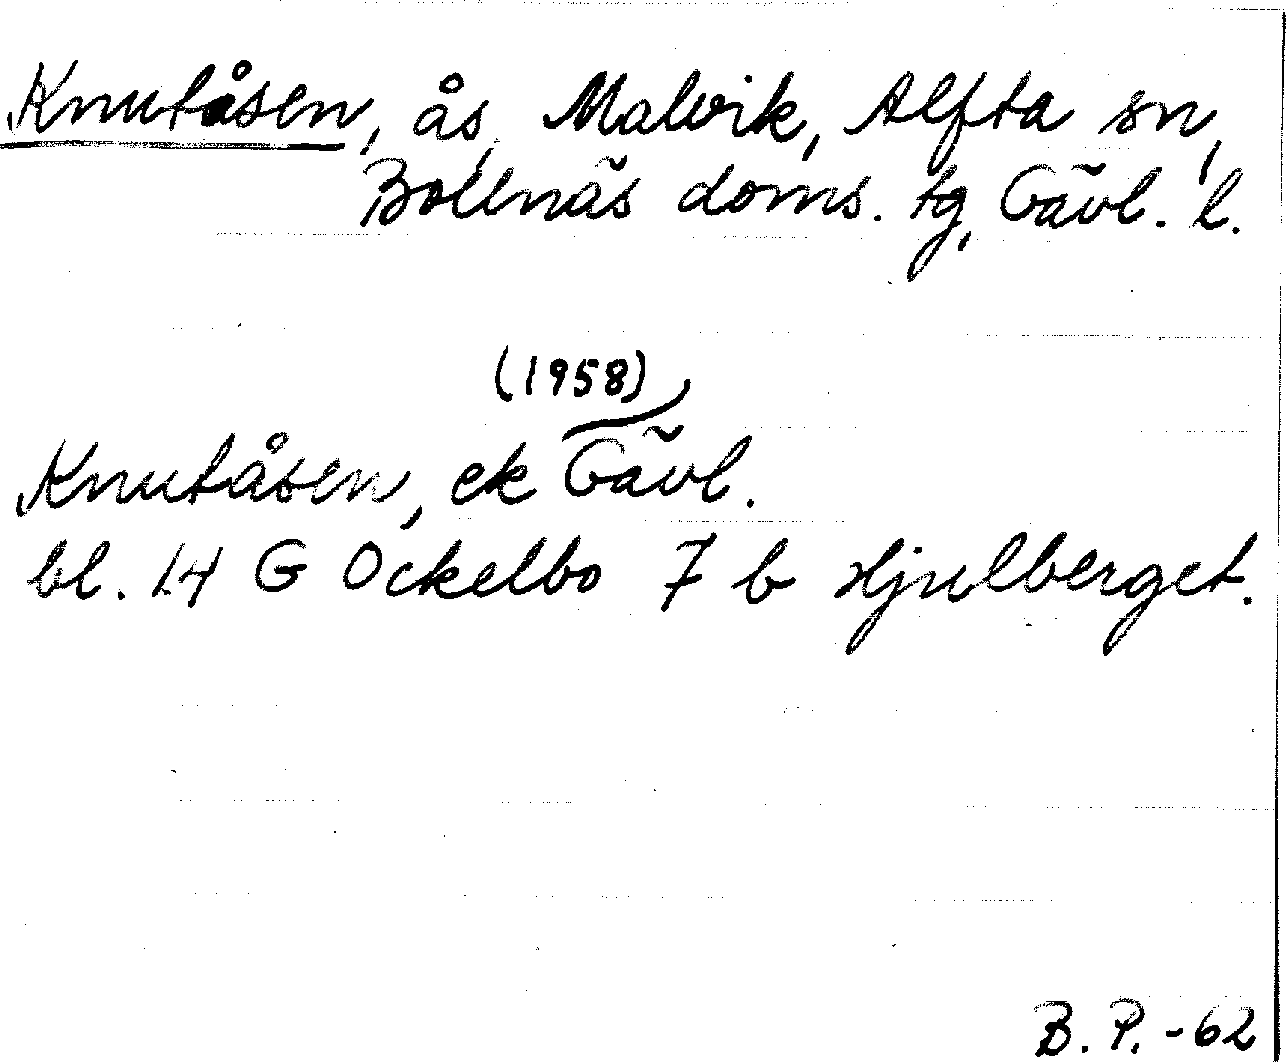 Knutåsen, ås, Malvik, Alfta sn,
Bollnäs doms. tg, Gävl. l.
(1958)
Knutåsen, ek Gävl.
bl. 14 G Ockelbo 7 b Hjulberget.
B. P. -62